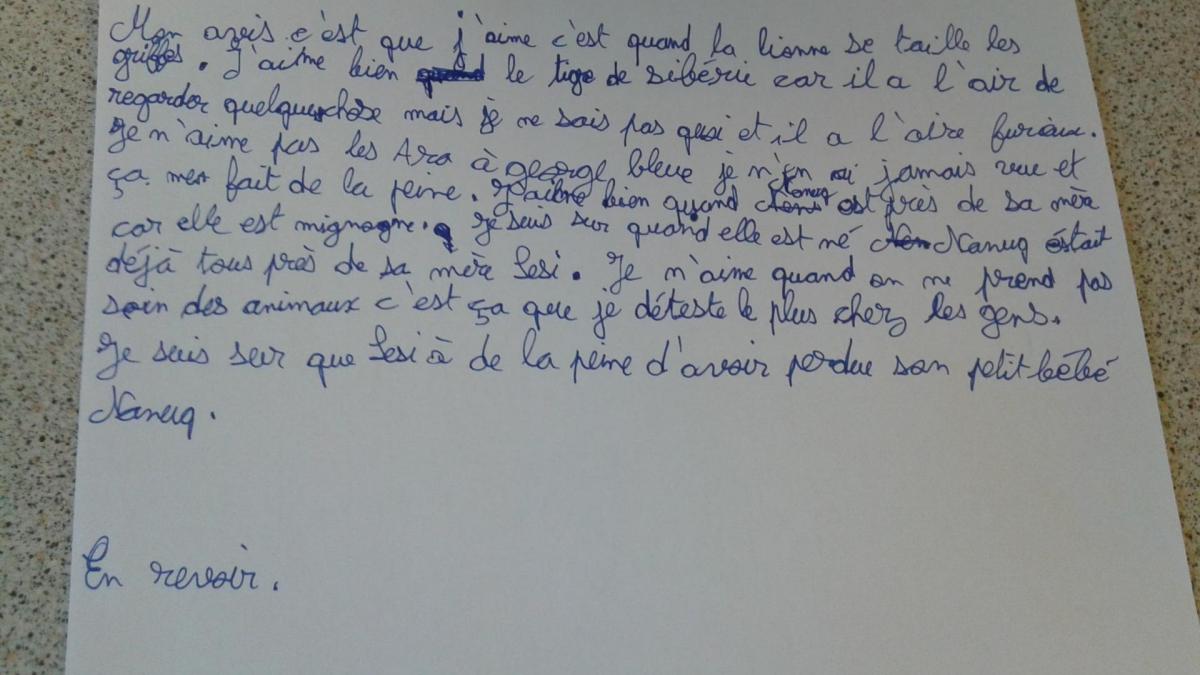 Mon avis c'est que j'aime c'est quand la lionne se taille les
griffes. J'aime bien le tigre de sibérie car il a l'air de
regarder quelquechose mais je ne sais pas quoi et il a l'aire furieux.
Je n'aime pas les Ara à george bleue je n'en ai jamais vue et
ça fait de la peine. J'aime bien quand Nanuq est près de sa mère
car elle est mignogne. Je suis sur quand elle est né Nanuq était
déjà tous près de sa mère Sesi. Je n'aime quand on ne prend pas
soin des animaux c'est ça que je déteste le plus cherz les gens.
Je suis seur que Sesi à de la peine d'avoir perdue son petit bébé
Nanuq.
En revoir.